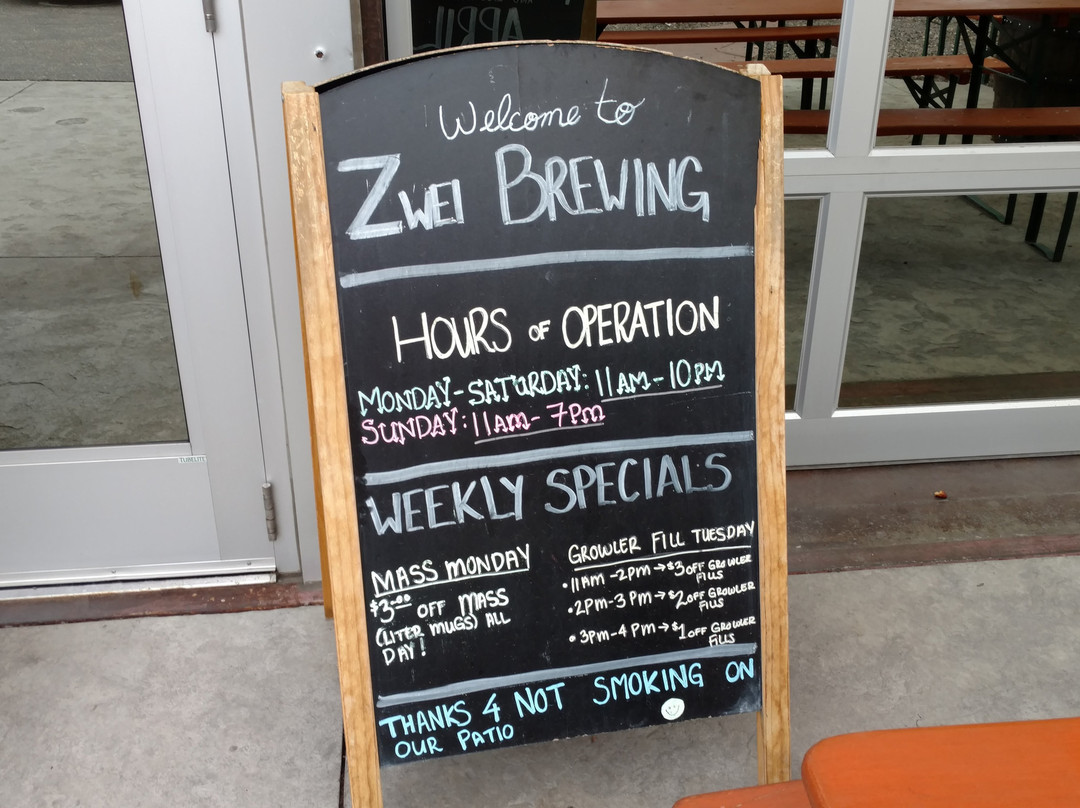 APRIL
Welcome to
ZWEI BREWING
HOURS OF OPERATION
MONDAY-SATURDAY: 11AM-10PM
SUNDAY: 11AM-7PM
WEEKLY SPECIALS
MASS MONDAY
$3.00 OFF MASS
(LITER MUGS) ALL
DAY!
GROWLER FILL TUESDAY
• 11AM-2PM → $3 OFF GROWLER
FILLS
• 2PM-3PM → $2 OFF GROWLER
FILLS
• 3PM-4PM → $1 OFF GROWLER
FILLS
THANKS 4 NOT SMOKING ON
OUR PATIO
TUBELITE